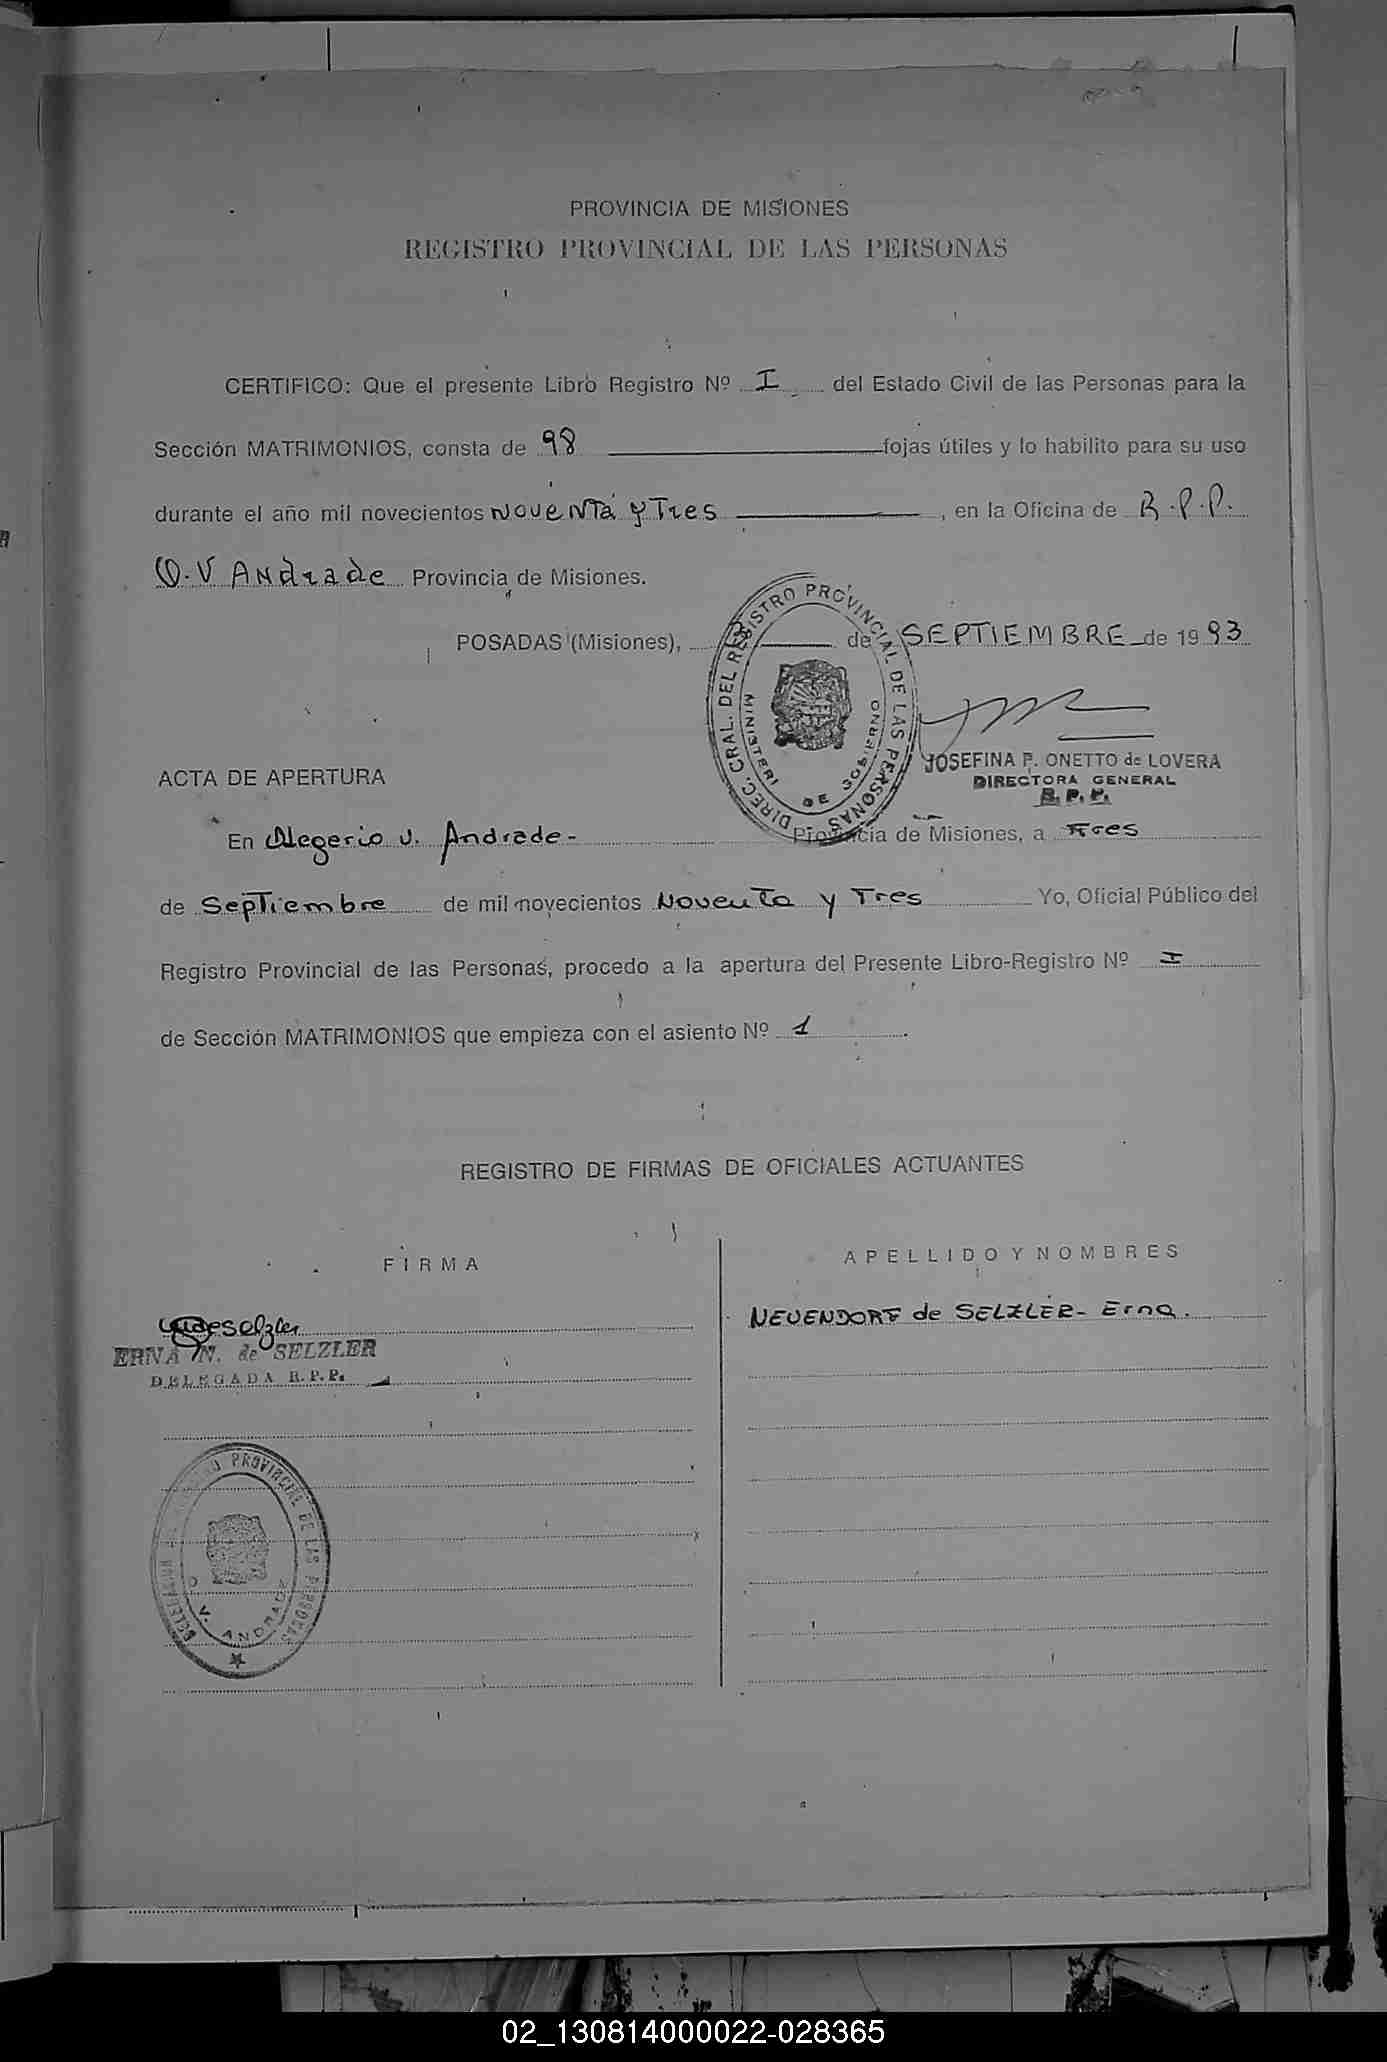 PROVINCIA DE MISIONES
REGISTRO PROVINCIAL DE LAS PERSONAS
CERTIFICO: Que el presente Libro Registro Nº I del Estado Civil de las Personas para la
Sección MATRIMONIOS, consta de 98 fojas útiles y lo habilito para su uso
durante el año mil novecientos Noventa y Tres, en la Oficina de R.P.P.
O.V Andrade Provincia de Misiones.
POSADAS (Misiones), 3 de SEPTIEMBRE de 1993
DIREC. GRAL. DEL REGISTRO PROVINCIAL DE LAS PERSONAS
MINISTERI DE GOBIERNO
JOSEFINA P. ONETTO de LOVERA
DIRECTORA GENERAL
R.P.P.
ACTA DE APERTURA
En Olegerio V. Andrade- Provincia de Misiones, a Tres
de Septiembre de mil novecientos Noventa y Tres Yo, Oficial Público del
Registro Provincial de las Personas, procedo a la apertura del Presente Libro-Registro Nº I
de Sección MATRIMONIOS que empieza con el asiento Nº 1.
REGISTRO DE FIRMAS DE OFICIALES ACTUANTES
FIRMA
APELLIDO Y NOMBRES
deSelzler
NEUENDORF de SELZLER- Erna.
ERNA N. de SELZLER
DELEGADA R.P.P.
PROVINCIAL DE LAS PERSONAS
O V. ANDRADE
02_130814000022-028365